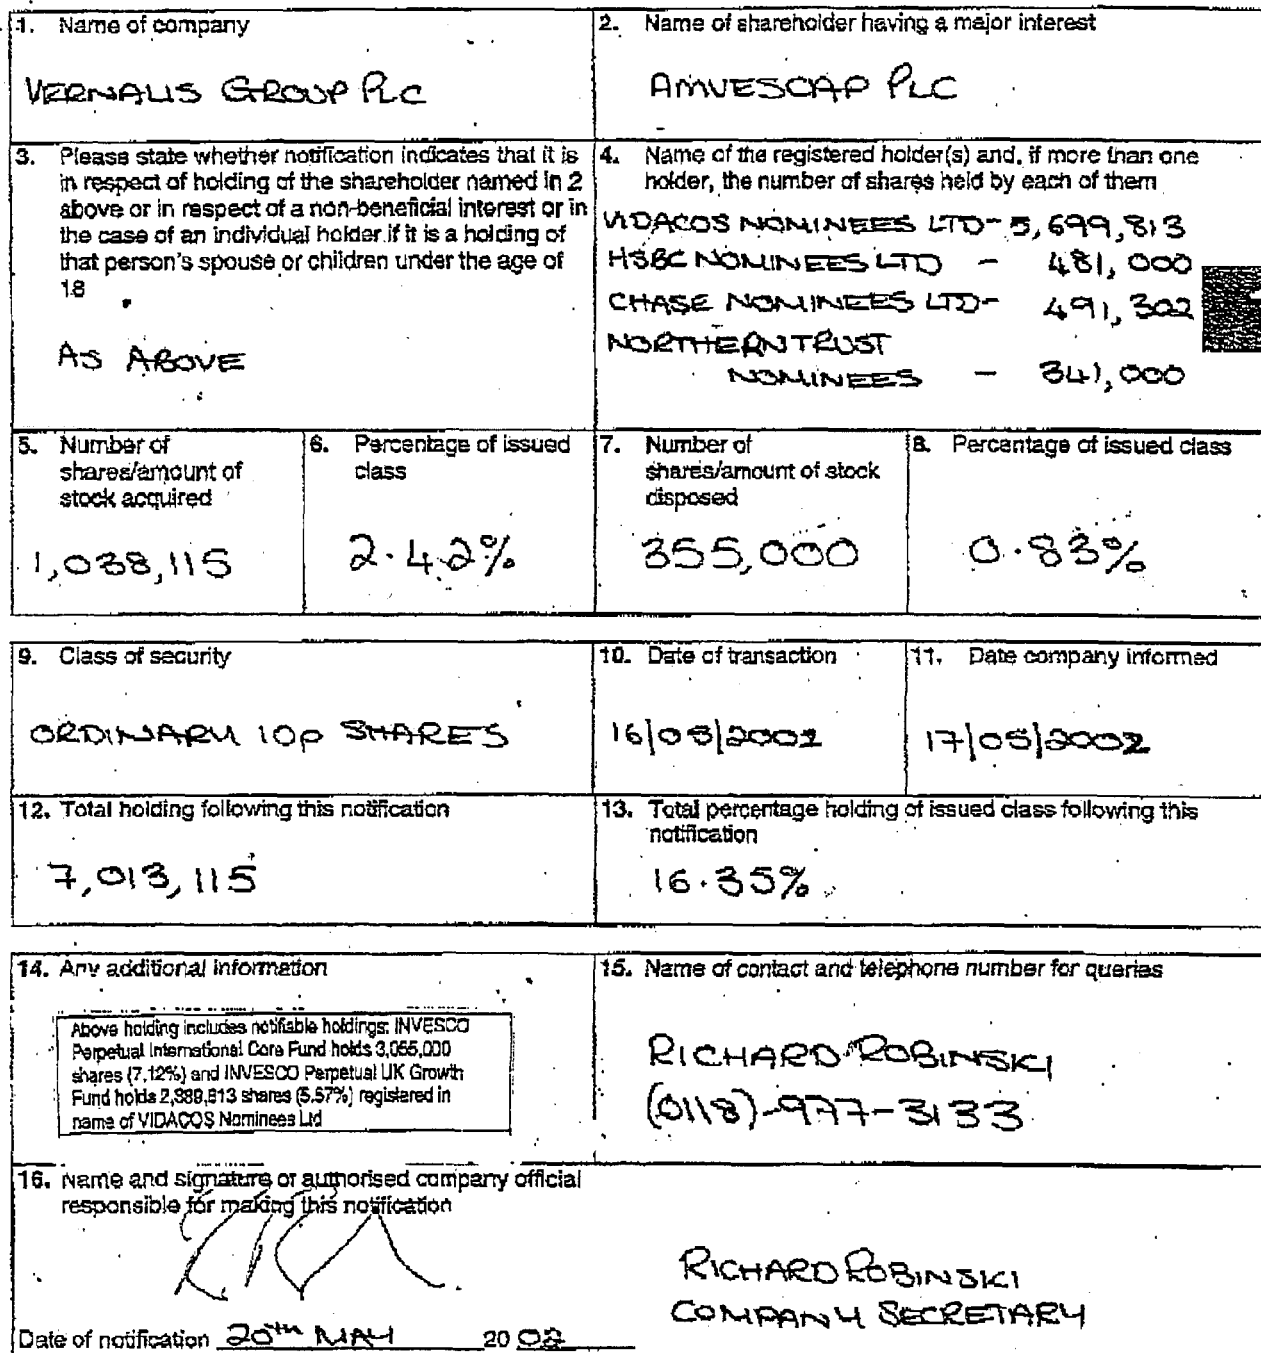 1. Name of company
VERNALIS GROUP PLC
2. Name of shareholder having a major interest
AMVESCAP PLC
3. Please state whether notification indicates that it is
in respect of holding of the shareholder named in 2
above or in respect of a non-beneficial interest or in
the case of an individual holder if it is a holding of
that person's spouse or children under the age of
18
AS ABOVE
4. Name of the registered holder(s) and, if more than one
holder, the number of shares held by each of them
VIDACOS NOMINEES LTD - 5,699,813
HSBC NOMINEES LTD - 481,000
CHASE NOMINEES LTD - 491,302
NORTHERN TRUST
NOMINEES - 341,000
5. Number of
shares/amount of
stock acquired
1,038,115
6. Percentage of issued
class
2.42%
7. Number of
shares/amount of stock
disposed
355,000
8. Percentage of issued class
0.83%
9. Class of security
ORDINARY 10p SHARES
10. Date of transaction
16/05/2002
11. Date company informed
17/05/2002
12. Total holding following this notification
7,013,115
13. Total percentage holding of issued class following this
notification
16.35%
14. Any additional information
Above holding includes notifiable holdings: INVESCO
Perpetual International Core Fund holds 3,055,000
shares (7.12%) and INVESCO Perpetual UK Growth
Fund holds shares (5.57%) registered in
name of VIDACOS Nominees Ltd
15. Name of contact and telephone number for queries
RICHARD ROBINSKI
(0118)-977-3133
16. Name and signature or authorised company official
responsible for making this notification
RICHARD ROBINSKI
COMPANY SECRETARY
Date of notification 20th MAY 20 02